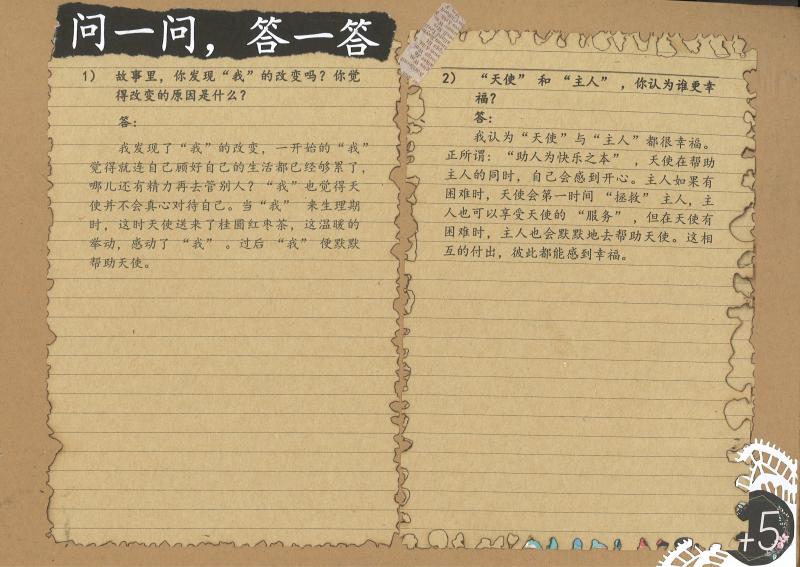 问一问，答一答
1） 故事里，你发现“我”的改变吗？你觉
得改变的原因是什么？
答：
我发现了“我”的改变，一开始的“我”
觉得就连自己顾好自己的生活都已经够累了，
哪儿还有精力再去管别人？“我”也觉得天
使并不会真心对待自己。当“我” 来生理期
时，这时天使送来了桂圆红枣茶，这温暖的
举动，感动了 “我” 。过后 “我” 便默默
帮助天使。
2） “天使” 和 “主人” ，你认为谁更幸
福？
答：
我认为“天使”与“主人”都很幸福。
正所谓：“助人为快乐之本” ，天使在帮助
主人的同时，自己会感到开心。主人如果有
困难时，天使会第一时间 “拯救” 主人，主
人也可以享受天使的 “服务” ，但在天使有
困难时，主人也会默默地去帮助天使。这相
互的付出，彼此都能感到幸福。
+5